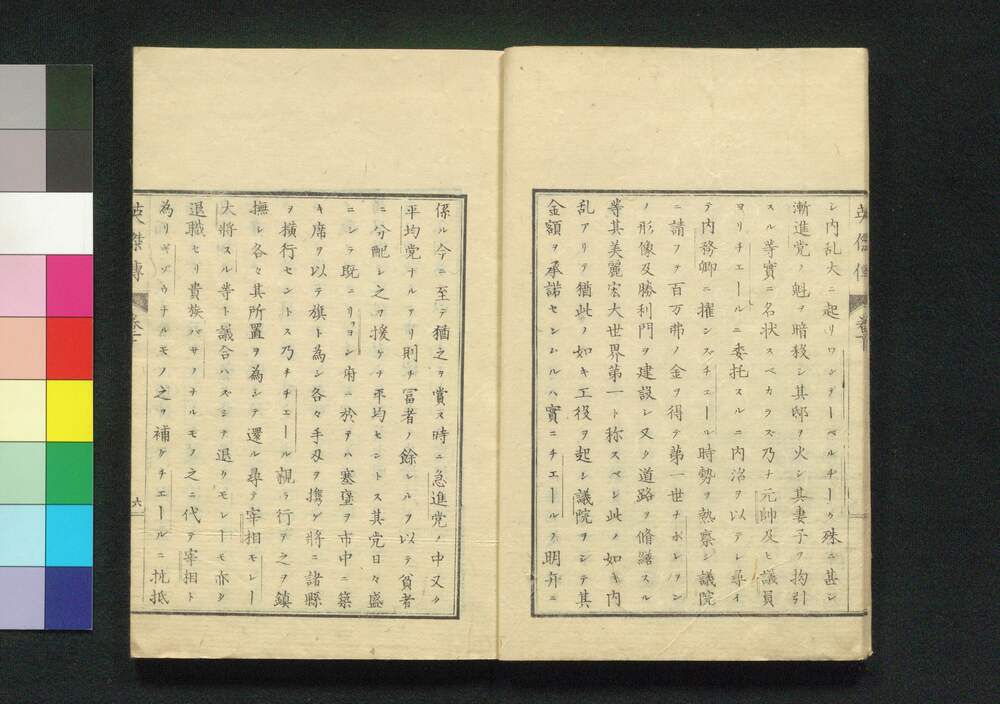 シ内乱大ニ起リワンデーベルチーク殊ニ甚シ
漸進党ノ魁ヲ暗殺シ其邸ヲ火シ其妻子ヲ拘引
スル等實ニ名状スベカラズ乃ナ元帥及ヒ議員
ヨリチエールニ委托スルニ内治ヲ以テレ尋イ
テ内務卿ニ擢ンズチエール時勢ヲ熟察シ議院
ニ請フテ百万弗ノ金ヲ得テ第一世ナポレヲン
ノ形像及勝利門ヲ建設レ又タ道路ヲ脩繕スル
等其美麗宏大世界第一ト称スベシ此ノ如キ内
乱アリテ猶此ノ如キ工役ヲ起シ議院ヲシテ其
金額ヲ承諾セシムルハ實ニチエールノ明弁ニ
係ル今ニ至テ猶之ヲ賞ス時ニ急進党ノ中又タ
平均党ナルアリ則チ冨者ノ餘レルヲ以テ貧者
ニ分配シ之ヲ援ケテ平均セントス其党日々盛
ニシテ既ニリヨン府ニ於テハ塞壘ヲ市中ニ築
キ席ヲ以テ旗ト為シ各々手刄ヲ携ゲ將ニ諸縣
ヲ横行セントス乃チチエール親ラ行テ之ヲ鎮
撫レ各々其所置ヲ為シテ還ル尋テ宰相モレー
大将スル等ト議合ハズシテ退クモレーモ亦タ
退職セリ貴族バサノナルモノ之ニ代テ宰相ト
為リギゾウナルモノ之ヲ補ケチエールニ抗抵
英傑傳
六